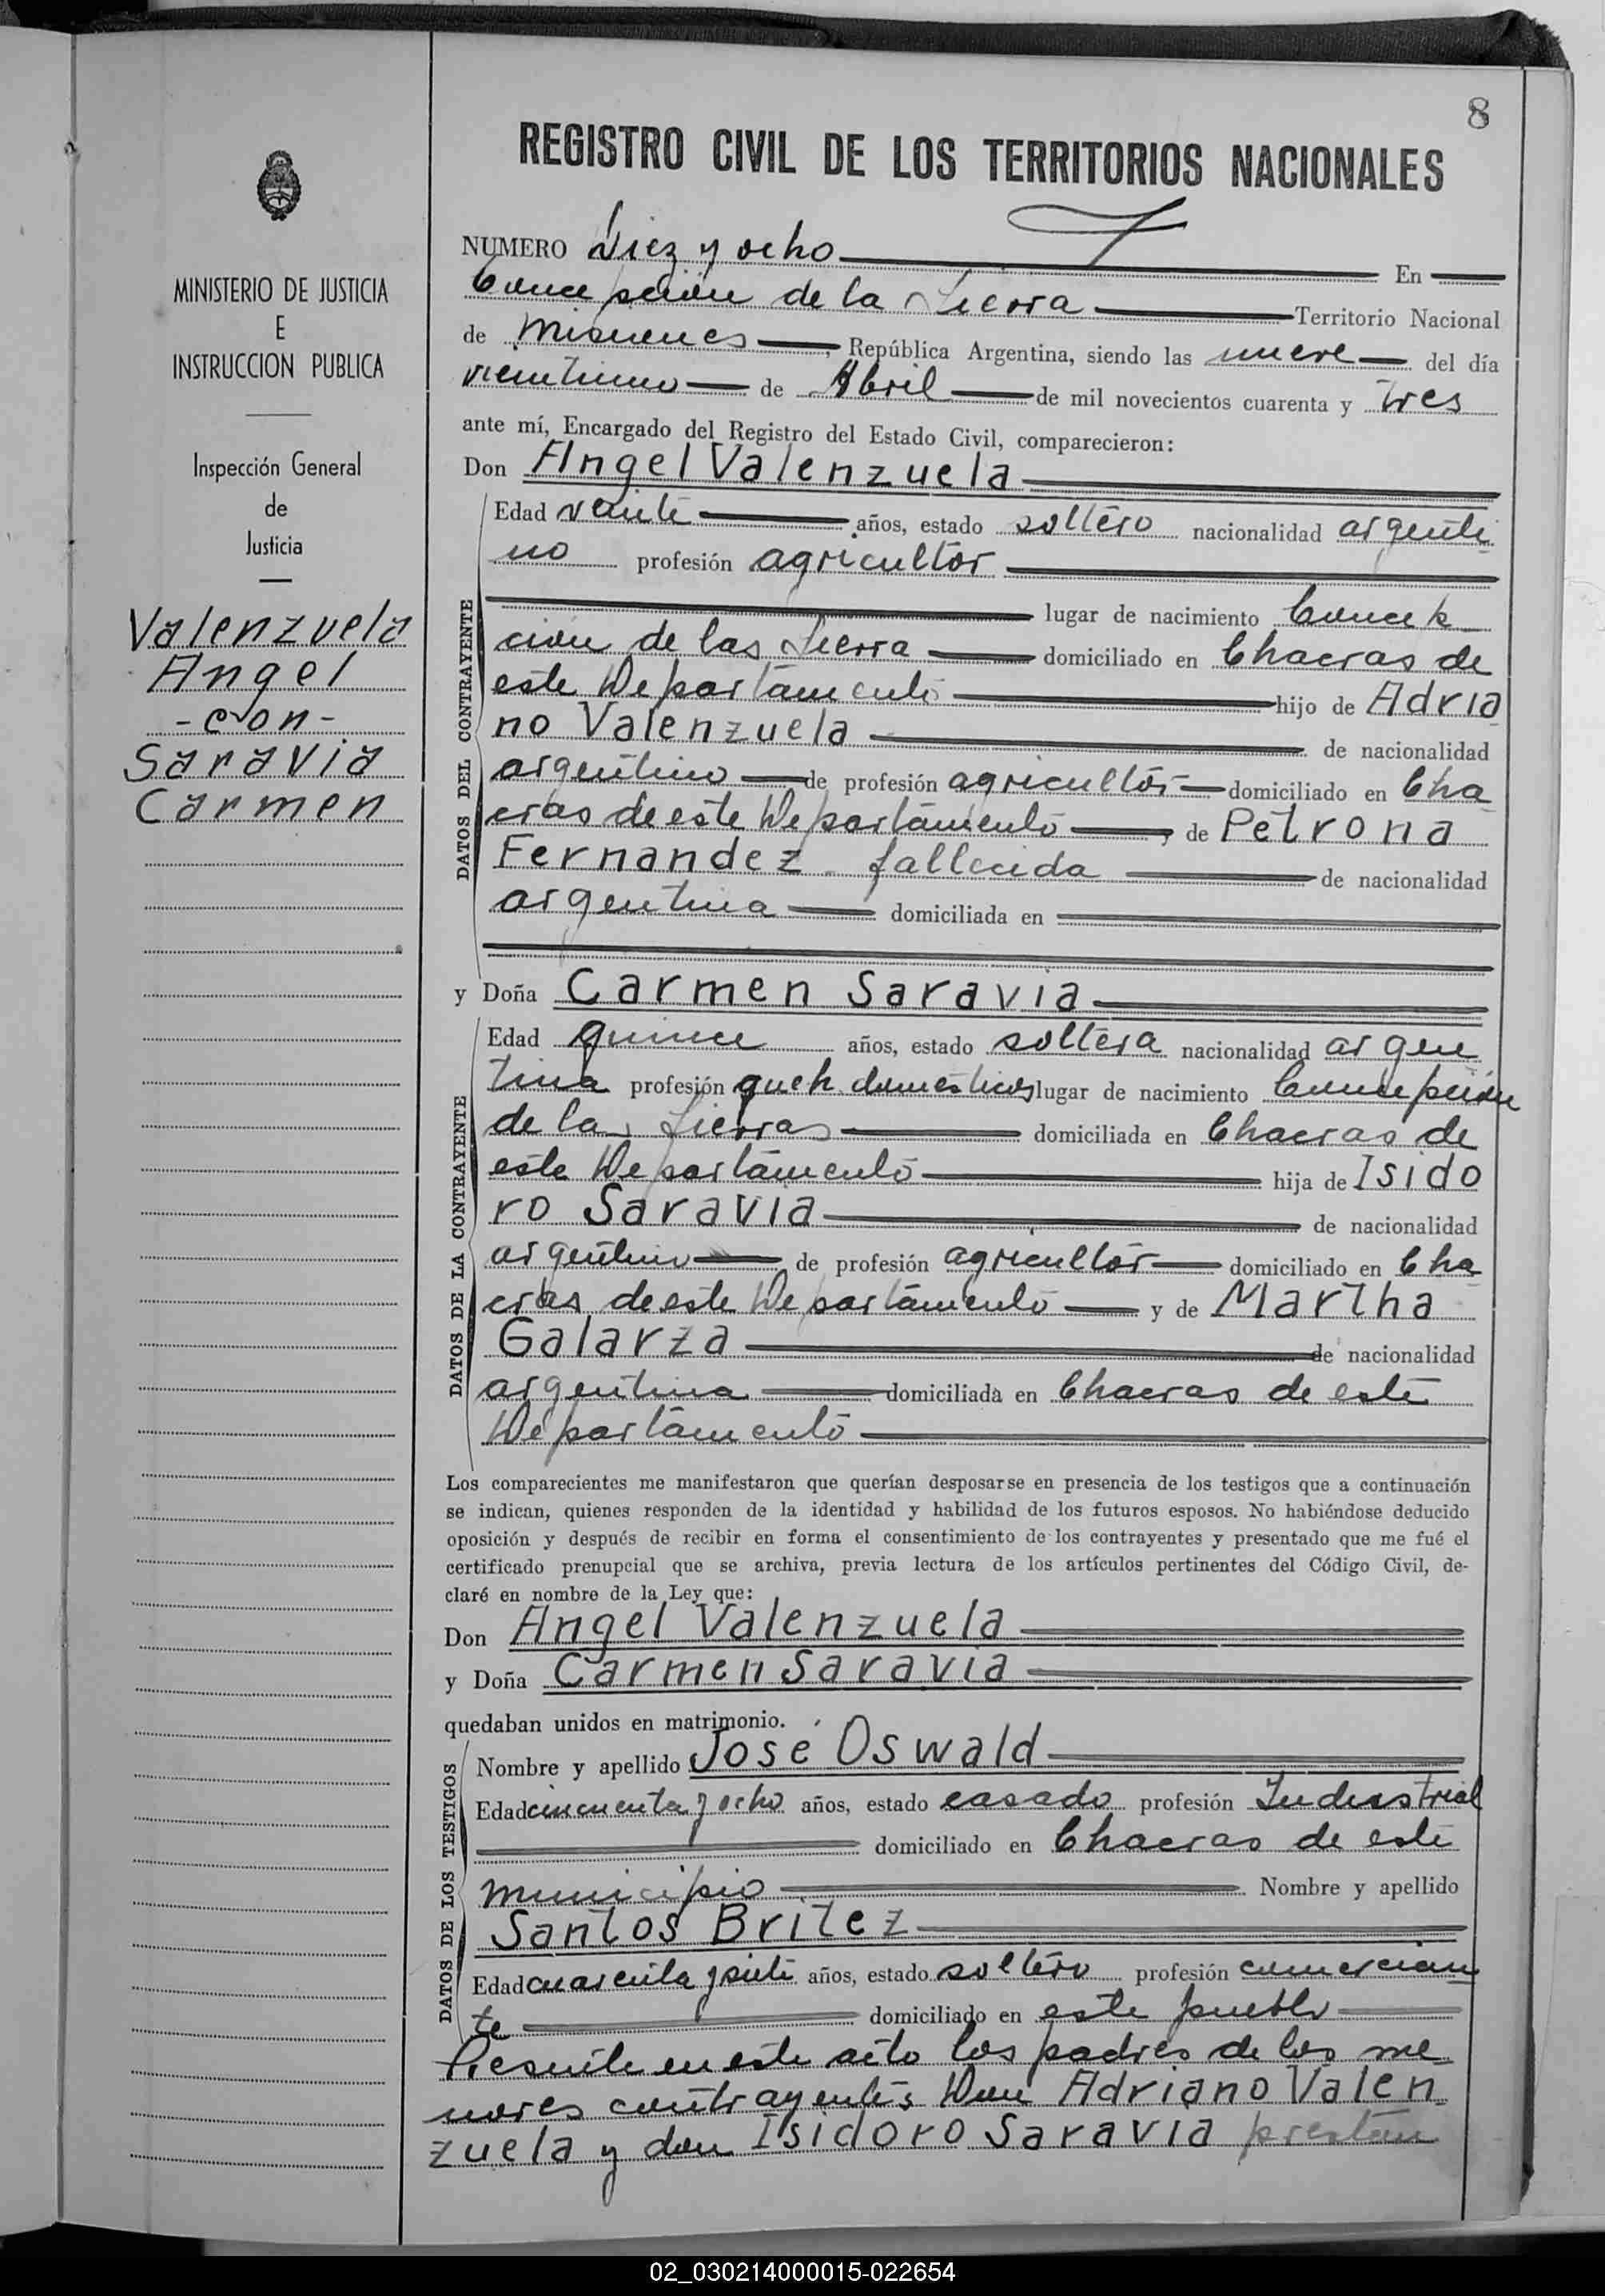 8
REGISTRO CIVIL DE LOS TERRITORIOS NACIONALES
MINISTERIO DE JUSTICIA
E
INSTRUCCION PUBLICA
Inspección General
de
Justicia
Valenzuela
Angel
-con-
Saravia
Carmen
NUMERO Diez y ocho En
Concepción de la Sierra Territorio Nacional
de Misiones, República Argentina, siendo las nueve del día
de Abril de mil novecientos cuarenta y tres
ante mí, Encargado del Registro del Estado Civil, comparecieron:
Don Angel Valenzuela
DATOS DEL CONTRAYENTE
Edad veinte años, estado soltero nacionalidad argenti
no profesión agricultor
lugar de nacimiento Concep
ción de las Sierra domiciliado en Chacras de
este Departamento hijo de Adria
no Valenzuela de nacionalidad
argentino de profesión agricultor domiciliado en Cha
cras de este Departamento, de Petrona
Fernandez fallecida de nacionalidad
argentina domiciliada en
y Doña Carmen Saravia
DATOS DE LA CONTRAYENTE
Edad quince años, estado soltera nacionalidad argen
tina profesión queh. domésticos lugar de nacimiento Concepción
de la Sierras domiciliada en Chacras de
este Departamento hija de Isido
ro Saravia de nacionalidad
argentino de profesión agricultor domiciliado en Cha
cras de este Departamento y de Martha
Galarza de nacionalidad
argentina domiciliada en Chacras de este
Departamento
Los comparecientes me manifestaron que querían desposarse en presencia de los testigos que a continuación
se indican, quienes responden de la identidad y habilidad de los futuros esposos. No habiéndose deducido
oposición y después de recibir en forma el consentimiento de los contrayentes y presentado que me fué el
certificado prenupcial que se archiva, previa lectura de los artículos pertinentes del Código Civil, de-
claré en nombre de la Ley que:
Don Angel Valenzuela
y Doña Carmen Saravia
quedaban unidos en matrimonio.
DATOS DE LOS TESTIGOS
Nombre y apellido José Oswald
Edad cincuenta y ocho años, estado casado profesión Industrial
domiciliado en Chacras de este
municipio Nombre y apellido
Santos Britez
Edad cuarenta y siete años, estado soltero profesión comercian
te domiciliado en este pueblo
Presente en este acto los padres de los me
nores contrayentes Don Adriano Valen
zuela y don Isidoro Saravia prestan
02_030214000015-022654